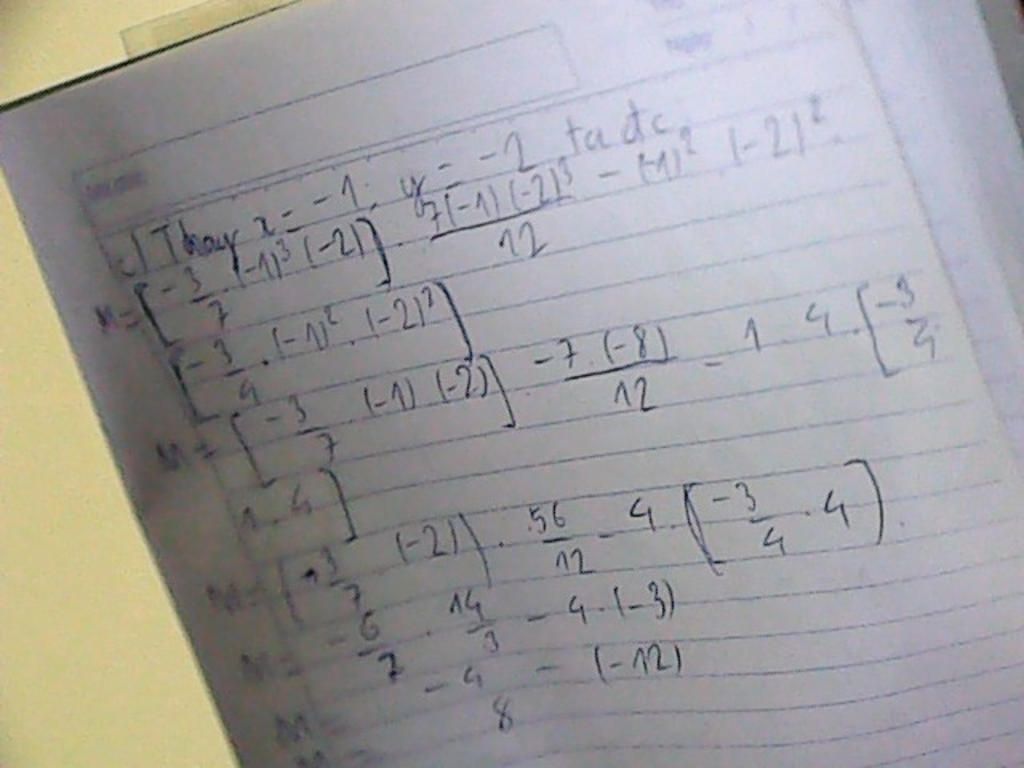 c) Thay x = -1; y = -2 ta dc
M = [-3/7 . (-1)³ (-2)] . 7(-1)(-2)³/12 - (-1)² (-2)² .
[-3/4 . (-1)² . (-2)²]
M = [-3/7 (-1) (-2)] . -7.(-8)/12 - 1 . 4 . [-3/4
1 . 4]
M = (3/7 (-2)) . 56/12 - 4 . (-3/4 . 4) .
M = -6/7 . 14/3 - 4 . (-3)
M = -4 - (-12)
M = 8